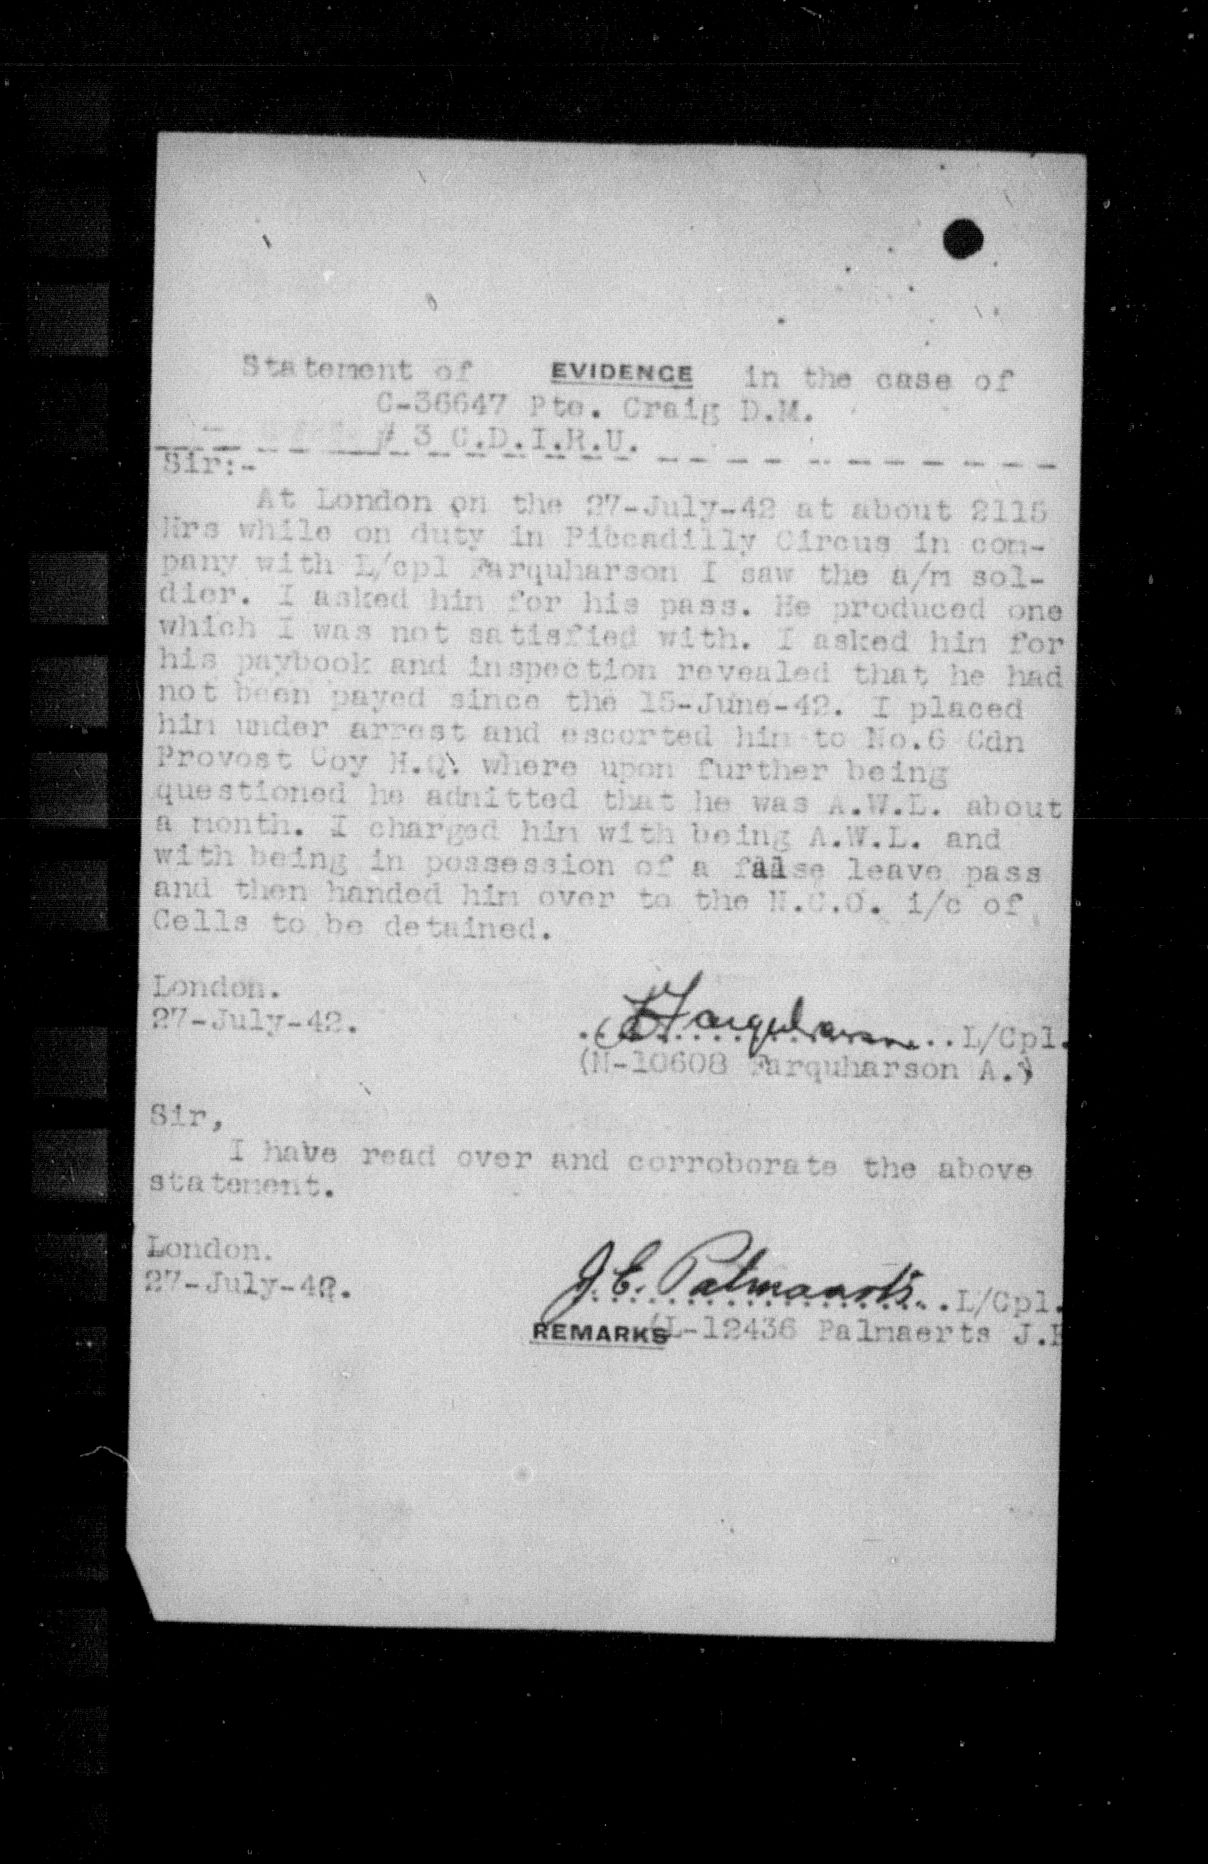 Statement of EVIDENCE in the case of
C-36647 Pte. Craig D.M.
# 3 C.D.I.R.U.
Sir:-
At London on the 27-July-42 at about 2115
Hrs while on duty in Piccadilly Circus in com-
pany with L/cpl Farquharson I saw the a/m sol-
dier. I asked him for his pass. He produced one
which I was not satisfied with. I asked him for
his paybook and inspection revealed that he had
not been payed since the 15-June-42. I placed
him under arrest and escorted him to No.6 Cdn
Provost Coy H.Q. where upon further being
questioned he admitted that he was A.W.L. about
a month. I charged him with being A.W.L. and
with being in possession of a false leave pass
and then handed him over to the N.C.O. i/c of
Cells to be detained.
London.
27-July-42.
Farquharson L/Cpl.
(N-10608 Farquharson A.)
Sir,
I have read over and corroborate the above
statement.
London.
27-July-42.
J.E. Palmaerts L/Cpl.
REMARKS (L-12436 Palmaerts J.E